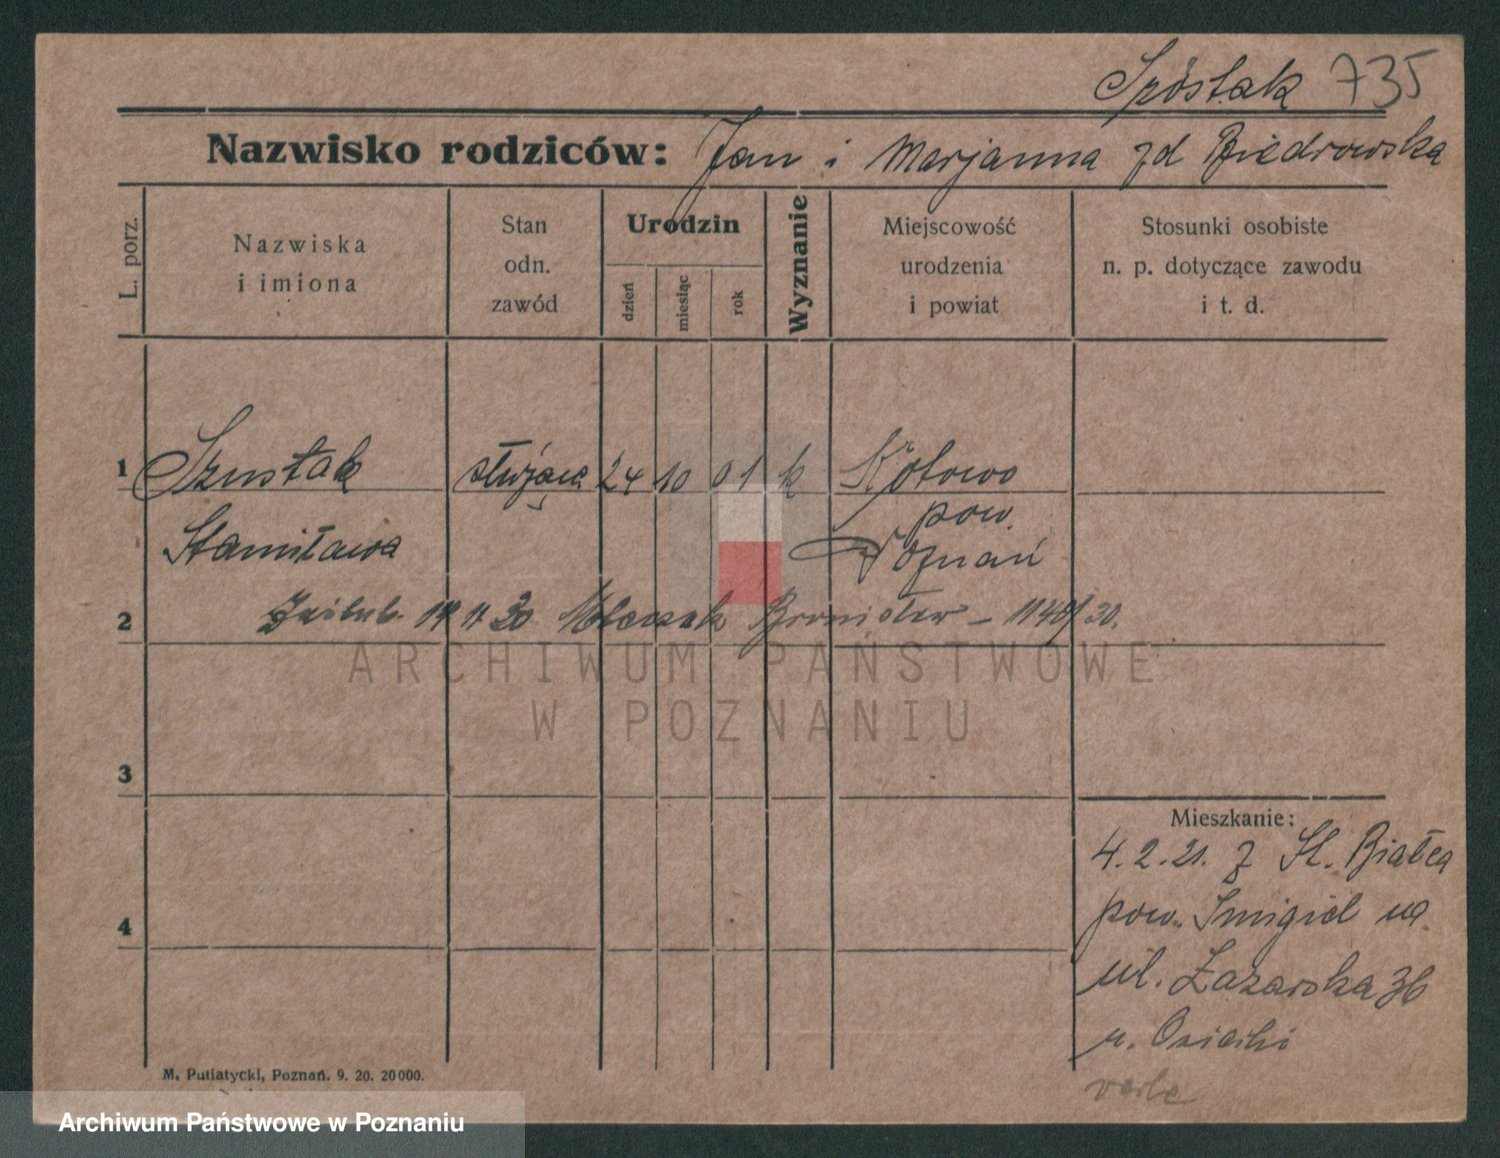 Szóstak 735
Nazwisko rodziców: Jan i Marjanna zd Biedrowska
L. porz.
Nazwiska
i imiona
Stan
odn.
zawód
Urodzin
dzień
miesiąc
rok
Wyznanie
Miejscowość
urodzenia
i powiat
Stosunki osobiste
n. p. dotyczące zawodu
i t. d.
1 Szustak służąca 24 10 01 k Kotowo
pow.
Stanisława Poznań
2 Zaślub. 11 30 Bronisław – 1140/30.
ARCHIWUM PAŃSTWOWE
W POZNANIU
3
Mieszkanie:
4.2.21. z St. Białcz
4 pow. Śmigiel na
ul. Łazarska 36
u.
M. Putiatycki, Poznań. 9. 20. 20000.
Archiwum Państwowe w Poznaniu